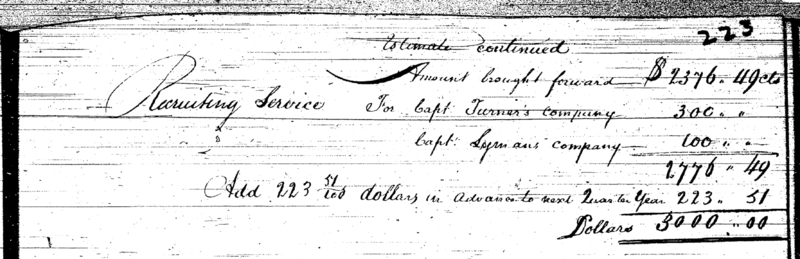 223
Estimate continued
Amount brought forward $ 2376 " 49 cts
Recruiting Service For Capt Turner's company 300 " "
Capt: Lyman's company 100 " "
2776 " 49
Add 223 51/100 dollars in advance to next Quarter Year 223 " 51
Dollars 3000 " 00